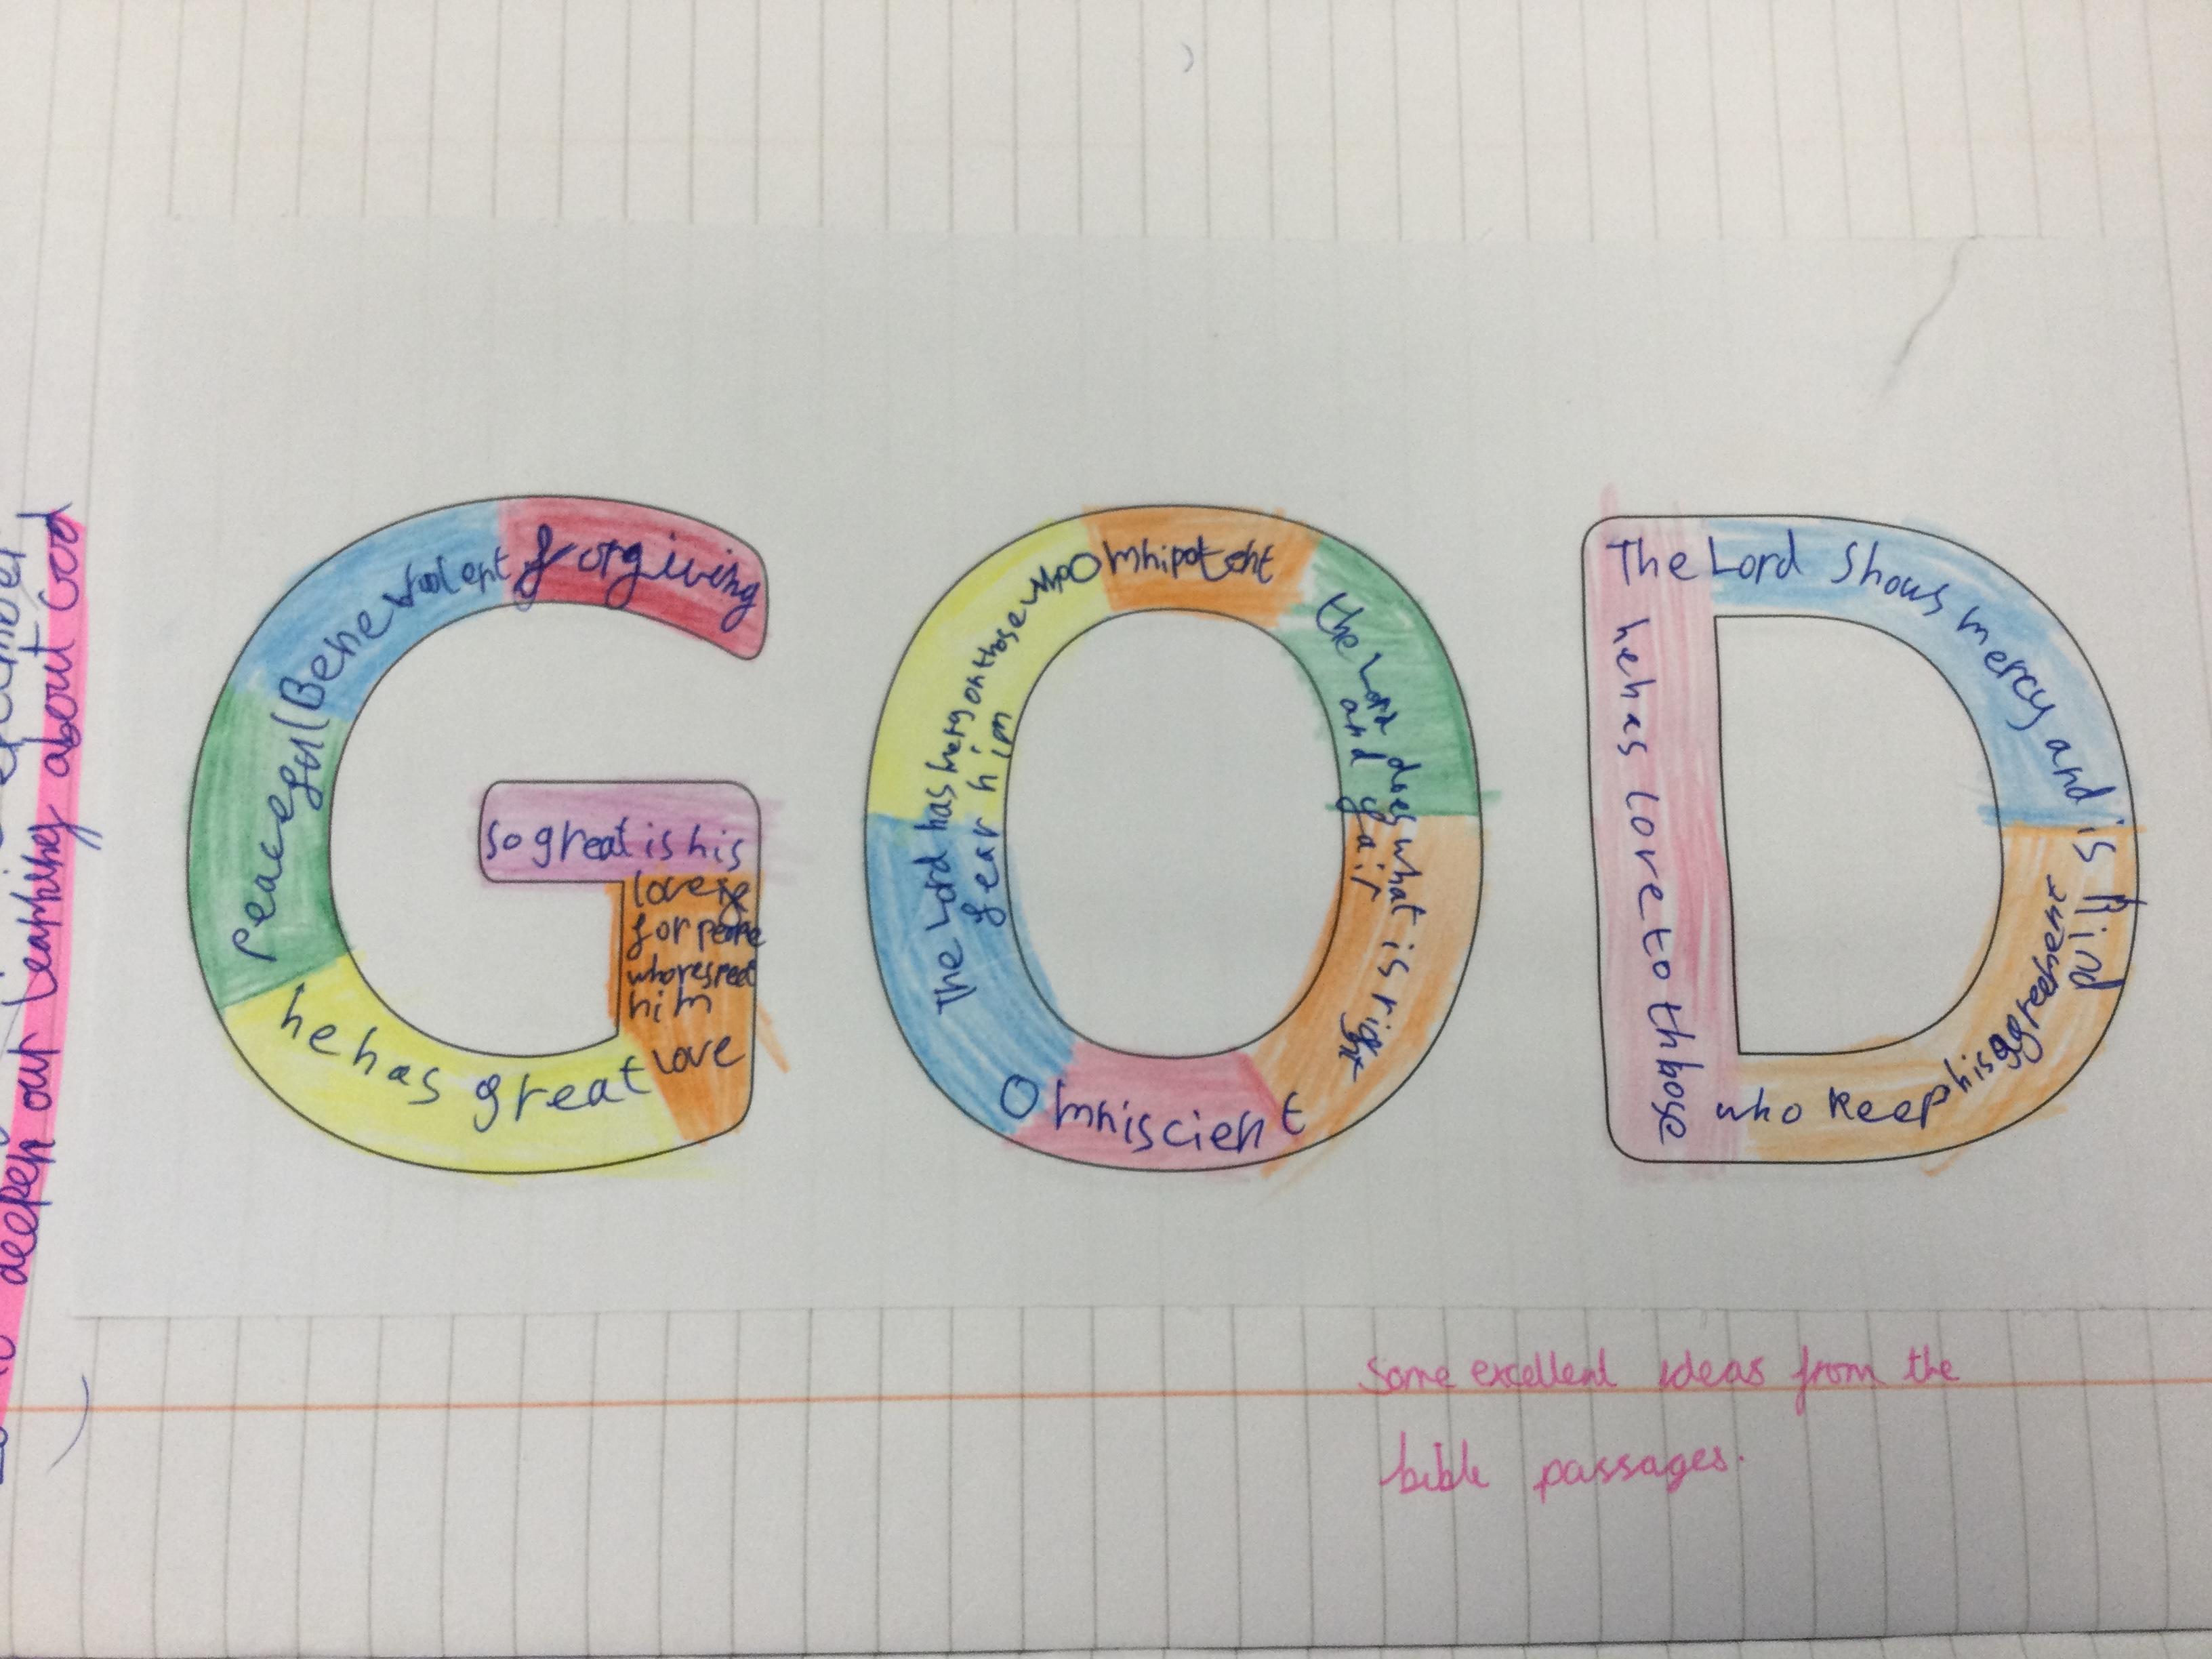 deepen our learning about God
forgiving
Benevolent
Peaceful
he has great love
so great is his
love
for people
who respect
him
Omnipotent
the Lord does what is right
and fair
The Lord has mercy on those who
fear him
Omniscient
The Lord shows mercy and is kind
he has love to those
who keep his aggreement
Some excellent ideas from the
bible passages.